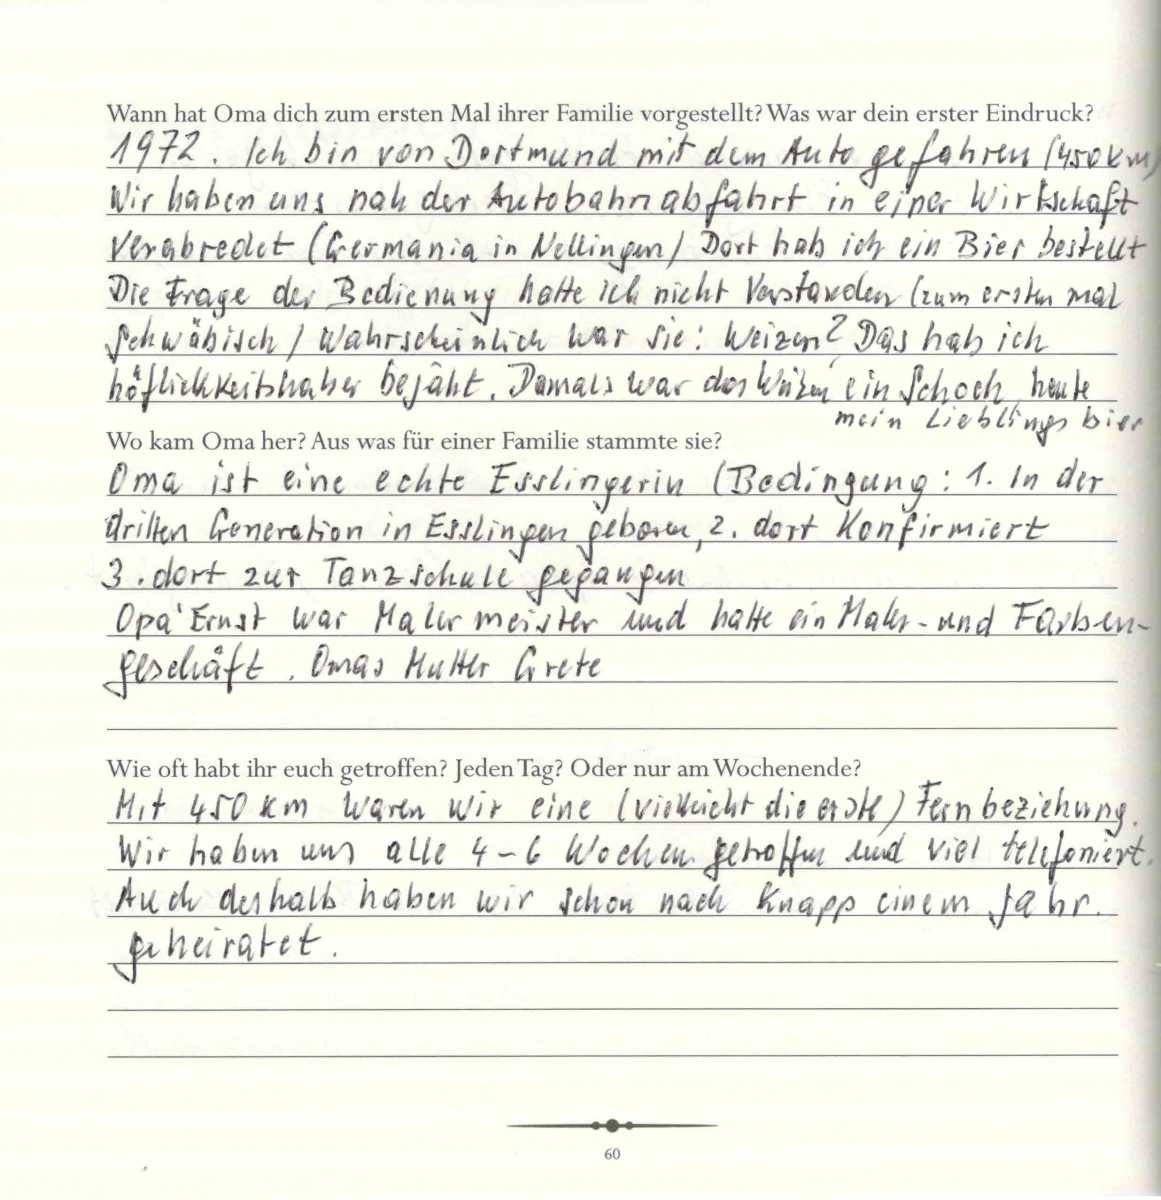 Wann hat Oma dich zum ersten Mal ihrer Familie vorgestellt? Was war dein erster Eindruck?
1972. Ich bin von Dortmund mit dem Auto gefahren (450 km)
Wir haben uns nah der Autobahnabfahrt in einer Wirtschaft
verabredet (Germania in Nellingen) Dort hab ich ein Bier bestellt
Die Frage der Bedienung hatte ich nicht verstanden (zum ersten mal
Schwäbisch) Wahrscheinlich war sie: Weizen? Das hab ich
höflichkeitshalber bejaht. Damals war das Weizen ein Schock, heute
mein Lieblingsbier
Wo kam Oma her? Aus was für einer Familie stammte sie?
Oma ist eine echte Esslingerin (Bedingung: 1. In der
dritten Generation in Esslingen geboren, 2. dort Konfirmiert
3. dort zur Tanzschule gegangen
Opa Ernst war Malermeister und hatte ein Maler- und Farben-
geschäft. Omas Mutter Grete
Wie oft habt ihr euch getroffen? Jeden Tag? Oder nur am Wochenende?
Mit 450 km waren wir eine (vielleicht die erste) Fernbeziehung.
Wir haben uns alle 4-6 Wochen getroffen und viel telefoniert.
Auch deshalb haben wir schon nach knapp einem Jahr
geheiratet.
60